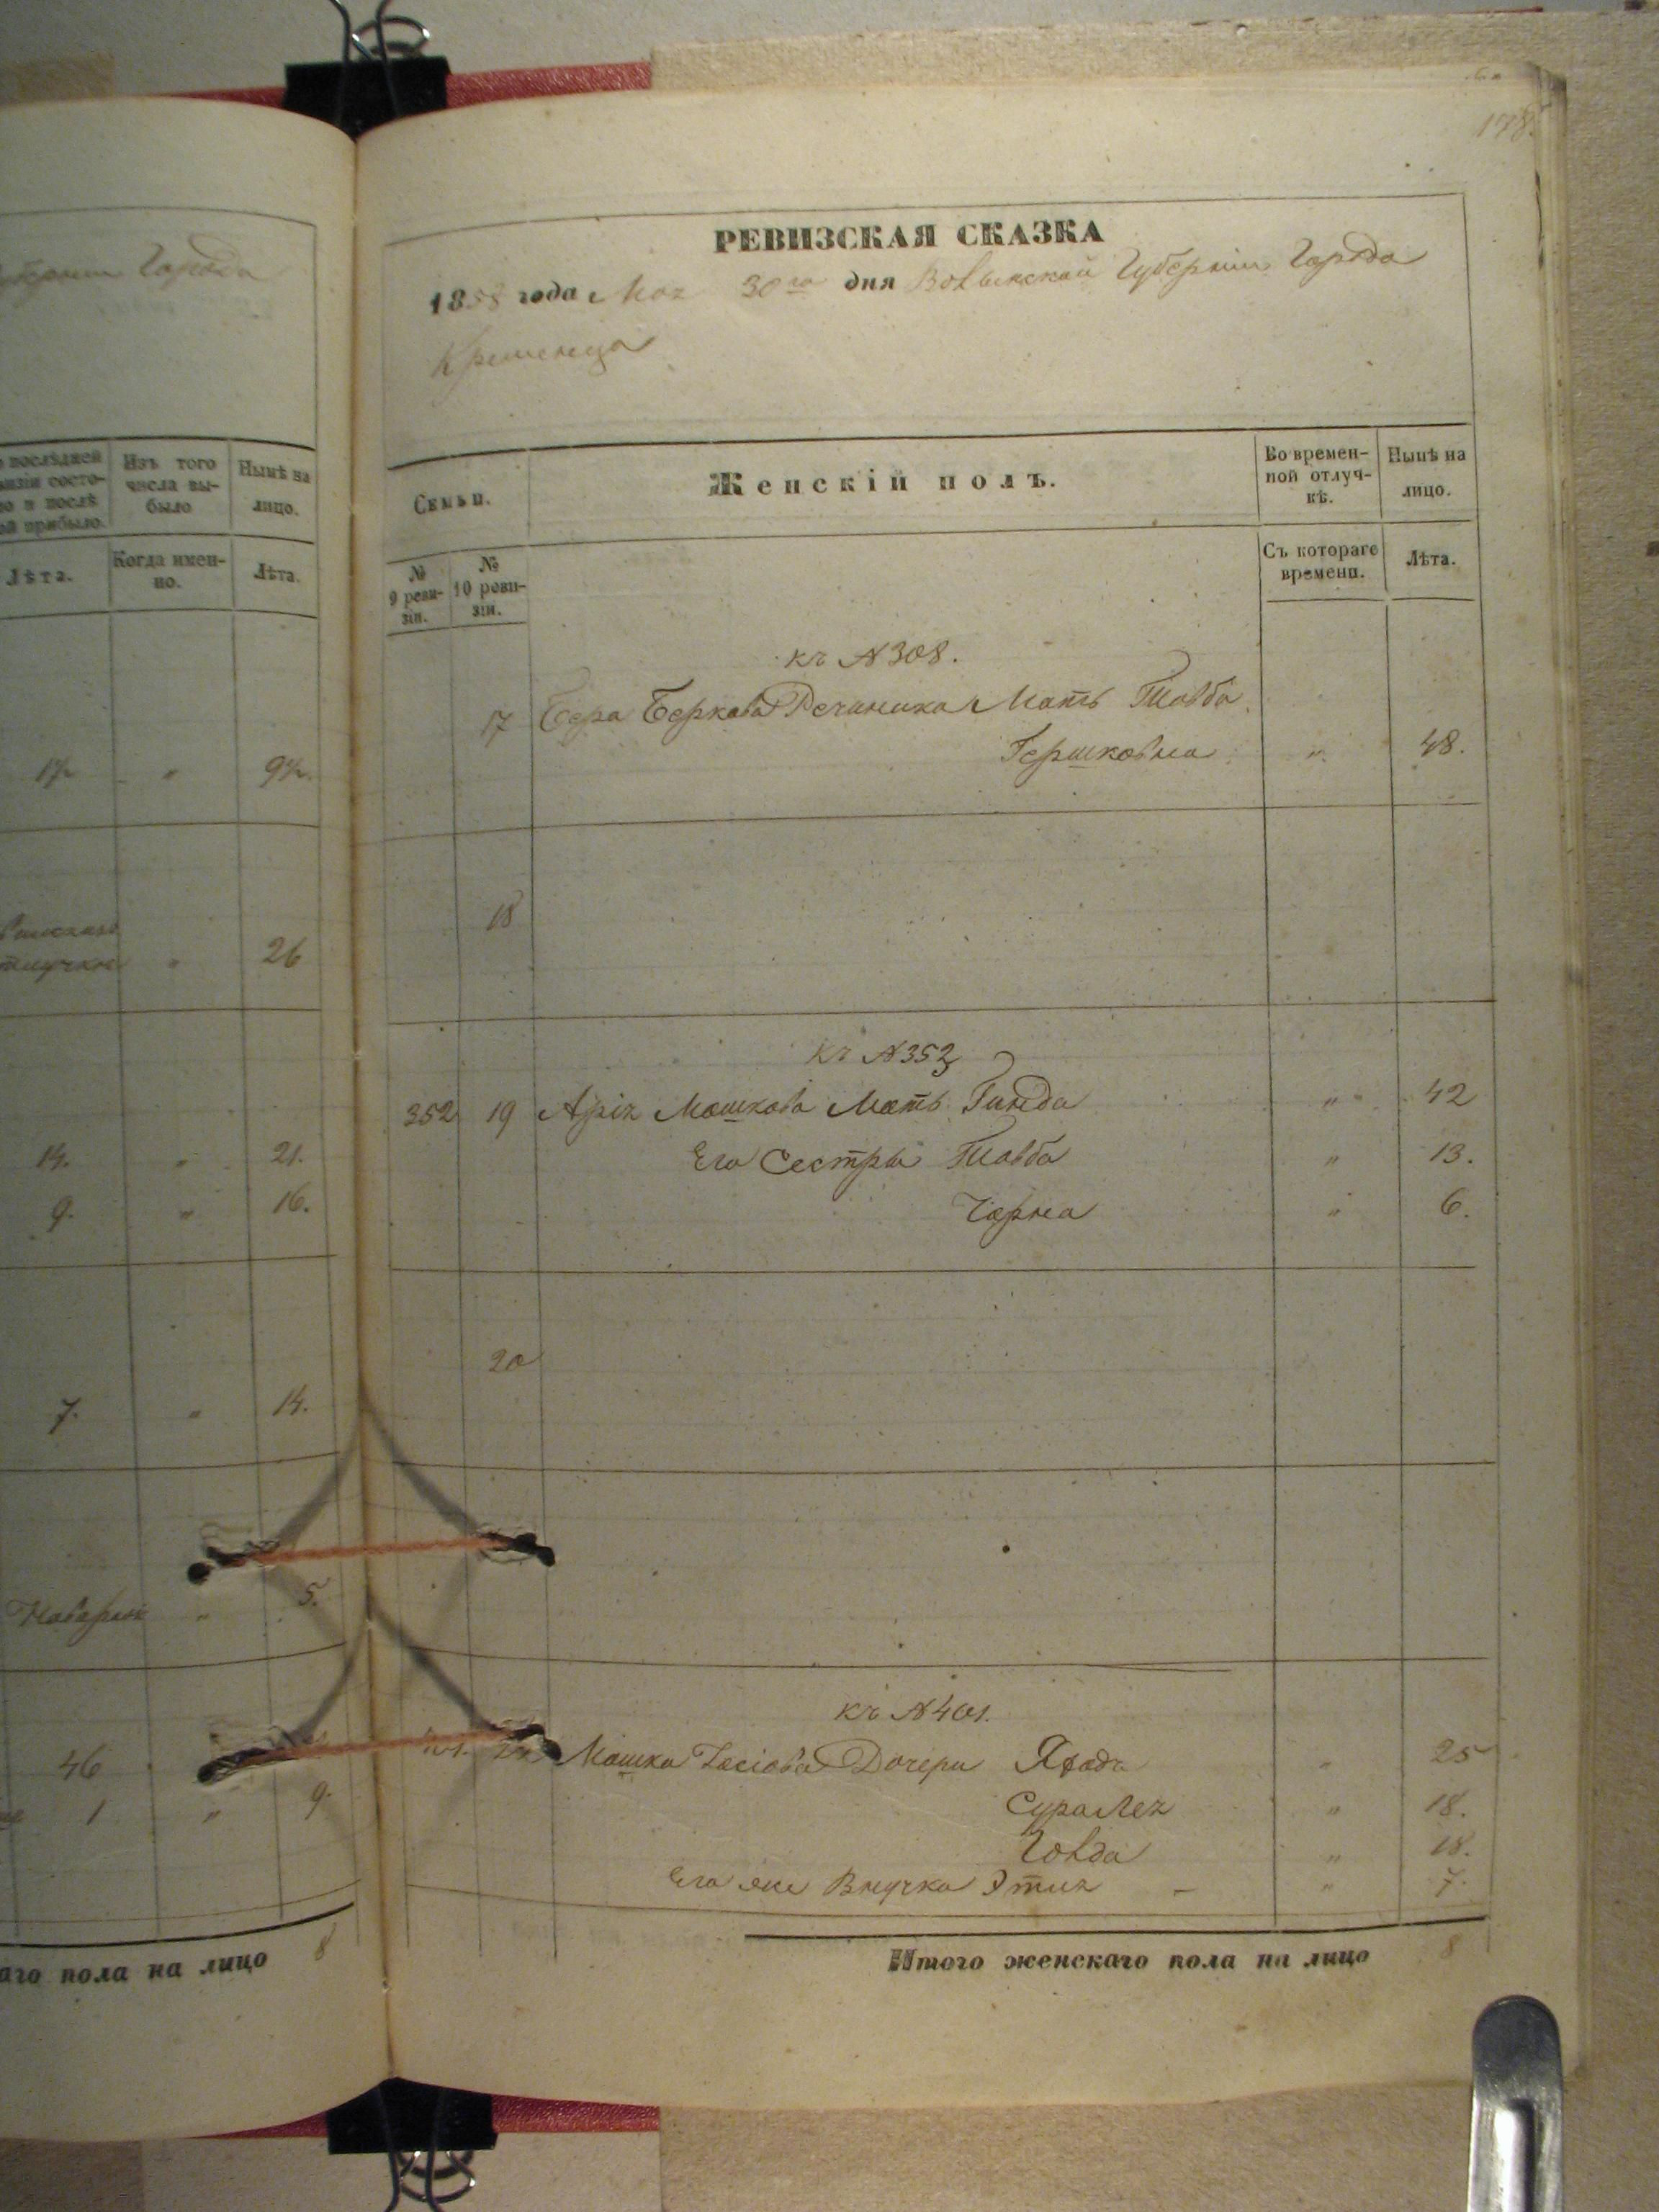 Города
послѣдней
Изъ того числа вы-было
Нынѣ на лицо.
Лѣта.
Когда имен-но.
Лѣта.
17
"
26
14.
"
21.
9.
"
16.
7.
"
14.
"
5.
46
1
"
9.
пола на лицо
8
178.
РЕВИЗСКАЯ СКАЗКА
1858 года Мая 30го дня Волынской Губерніи Города
Кременца
Семьи.
Женскій полъ.
Во времен-
ной отлуч-
кѣ.
Нынѣ на
лицо.
№
9 реви-
зіи.
№
10 реви-
зіи.
Съ котораго
времени.
Лѣта.
къ №308.
17 Бера Беркова Мать Товба
Гершковна " 48.
18
къ №352
352 19 Арія Мошкова Мать Гинда " 42
Его Сестры Товба " 13.
Чарна " 6.
20
къ №401.
Мошка Іосіова Дочери " 25
СураЛея " 18.
Голда " 18.
Его же Внучка Этия " 7.
Итого женскаго пола на лицо 8